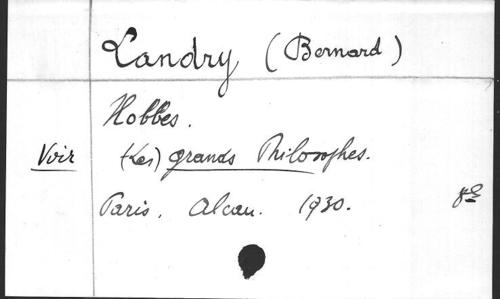 Landry (Bernard)
Hobbes.
Voir (Les) grands Philosophes.
Paris. Alcan. 1930. 8º